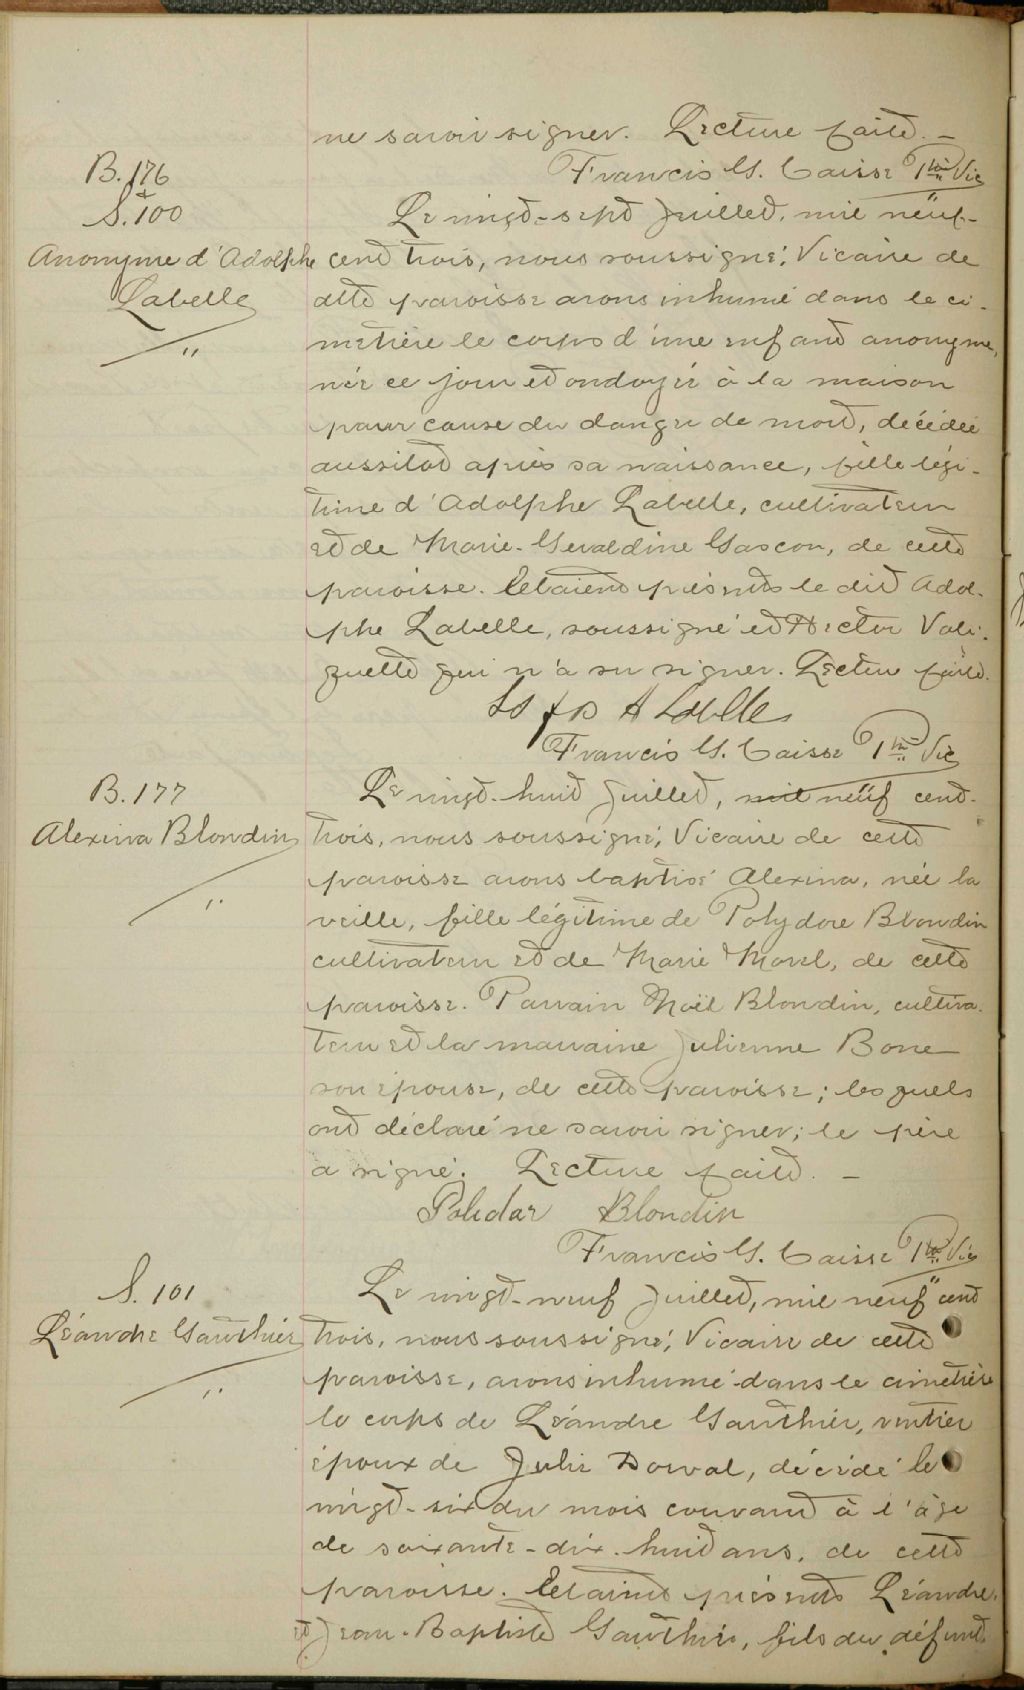 ne savoir signer. Lecture faite. –
Francis G. Caisse Ptre Vic
B. 176
&
S. 100
Anonyme d'Adolphe
Labelle
Le vingt-sept Juillet, mil neuf-
cent trois, nous soussigné, Vicaire de
cette paroisse avons inhumé dans le ci-
metière le corps d'une enfant anonyme,
née ce jour et ondoyée à la maison
pour cause du danger de mort, décédée
aussitôt après sa naissance, fille légi-
time d'Adolphe Labelle, cultivateur
et de Marie-Geraldine Gascon, de cette
paroisse. Étaient présents le dit Adol-
phe Labelle, soussigné et Hector Vali-
quette qui n'a su signer. Lecture faite.
A Labelle
Francis G. Caisse Ptre Vic
B. 177
Alexina Blondin
Le vingt-huit Juillet, mil neuf cent-
trois, nous soussigné, Vicaire de cette
paroisse avons baptisé Alexina, née la
veille, fille légitime de Polydore Blondin
cultivateur et de Marie Morel, de cette
paroisse. Parrain Noël Blondin, cultiva-
teur et la marraine Julienne Bone
son épouse, de cette paroisse; lesquels
ont déclaré ne savoir signer; le père
a signé. Lecture faite. –
Polidor Blondin
Francis G. Caisse Ptre Vic
S. 101
Léandre Gauthier
Le vingt-neuf Juillet, mil neuf cent
trois, nous soussigné, Vicaire de cette
paroisse, avons inhumé dans le cimetière
le corps de Léandre Gauthier, rentier
époux de Julie Dorval, décédé le
vingt-six du mois courant à l'âge
de soixante-dix-huit ans, de cette
paroisse. Étaient présents Léandre,
et Jean-Baptiste Gauthier, fils du défunt